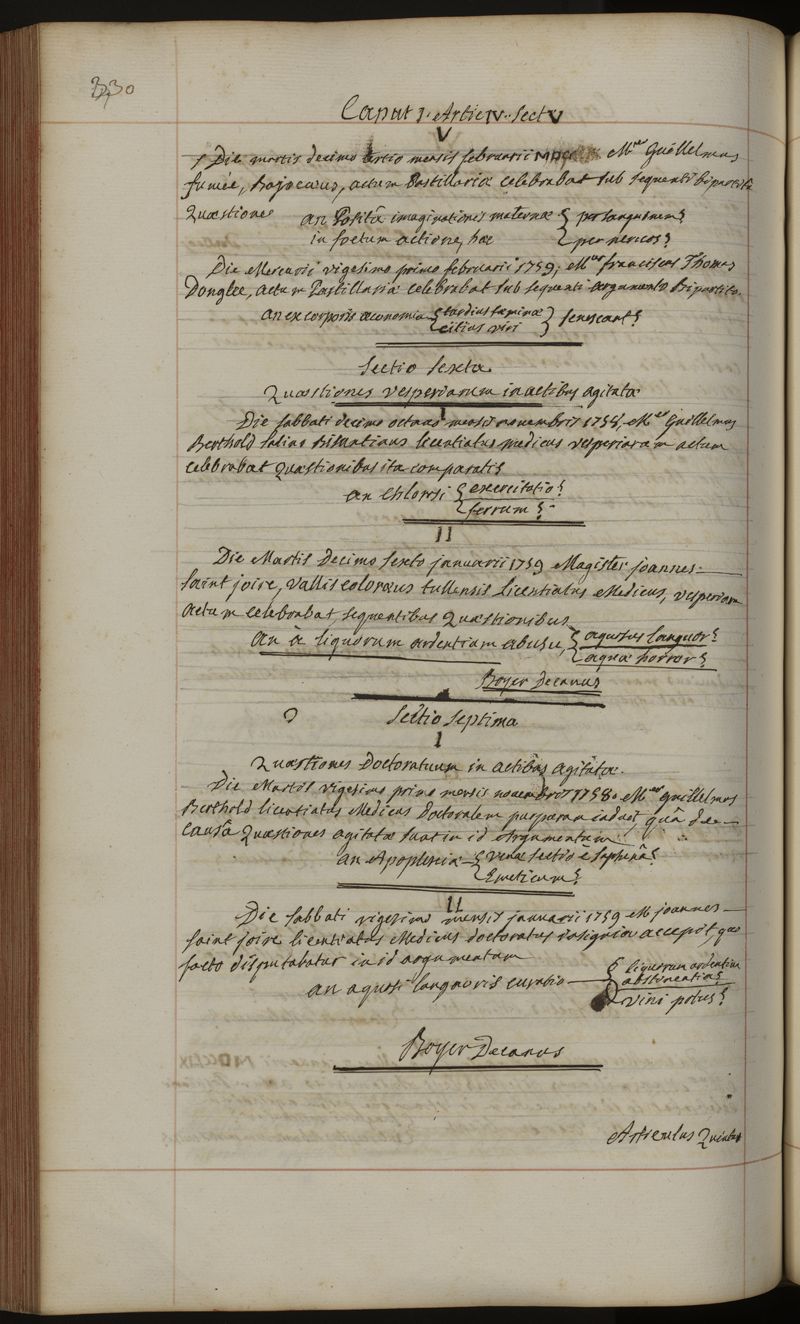 330
Caput I. Artic IV. Sect V
V
Die martis decimo tertio mensis februarii Mer Guillelmus
fumée, Bajocæus, actum Pastillariæ celebrabat sub sequenti bipartita
Quæstione an Positâ imaginationis maternæ { per sanguinem?
in foetum actione, hæc { per nervos?
Die Mercurii vigesimo primo februarii 1759, Mer franciscus Thomas
Donglee, actum Pastillaria celebrabat sub sequenti argumento Bipartito.
an ex corporis œconomia { tardius fæminæ } senescant?
{ citius viri }
Sectio Sexta
Quæstiones vesperiarum in actibus agitatæ
I
Die sabbati decimo octavo mensis novembris 1758, Mer Guillelmus
Berthold licentiatus medicus vesperiarum actum
celebrabat Quæstionibus ita comparatis
an Chlorosi { exercitatio?
{ ferrum?
II
Die Martis Decimo sexto januarii 1759 Magister joannes
Saint joire, Vallis coloræus tullensis Licentiatus Medicus, vesperiarum
actum celebrabat, sequentibus Quæstionibus
an à liquorum ardentium abusu, { aquosus languor?
{ aquæ horror?
Boyer Decanus
Sectio Septima
I
Quæstiones Doctoratuum in actibus agitatæ.
Die Martis vigesimo primo mensis novembris 1758. Mer guillelmus
Berthold licentiatus Medicus Doctoralem purpuram induit quâ de
Causâ Quæstiones agitatæ sunt in id Argumentum
an Apoplexiæ { Venæ sectio è Saphenâ?
{ Emeticum?
II
Die sabbati vigesimo mensis januarii 1759 M joannes
saint joire licentiatus Medicus doctoratus insignia accepit, quo
facto disputabatur in id argumentum
an aquosi languoris curatio { liquorum ardentium
abstinentia?
{ vini potus?
Boyer Decanus
Articulus Quintus